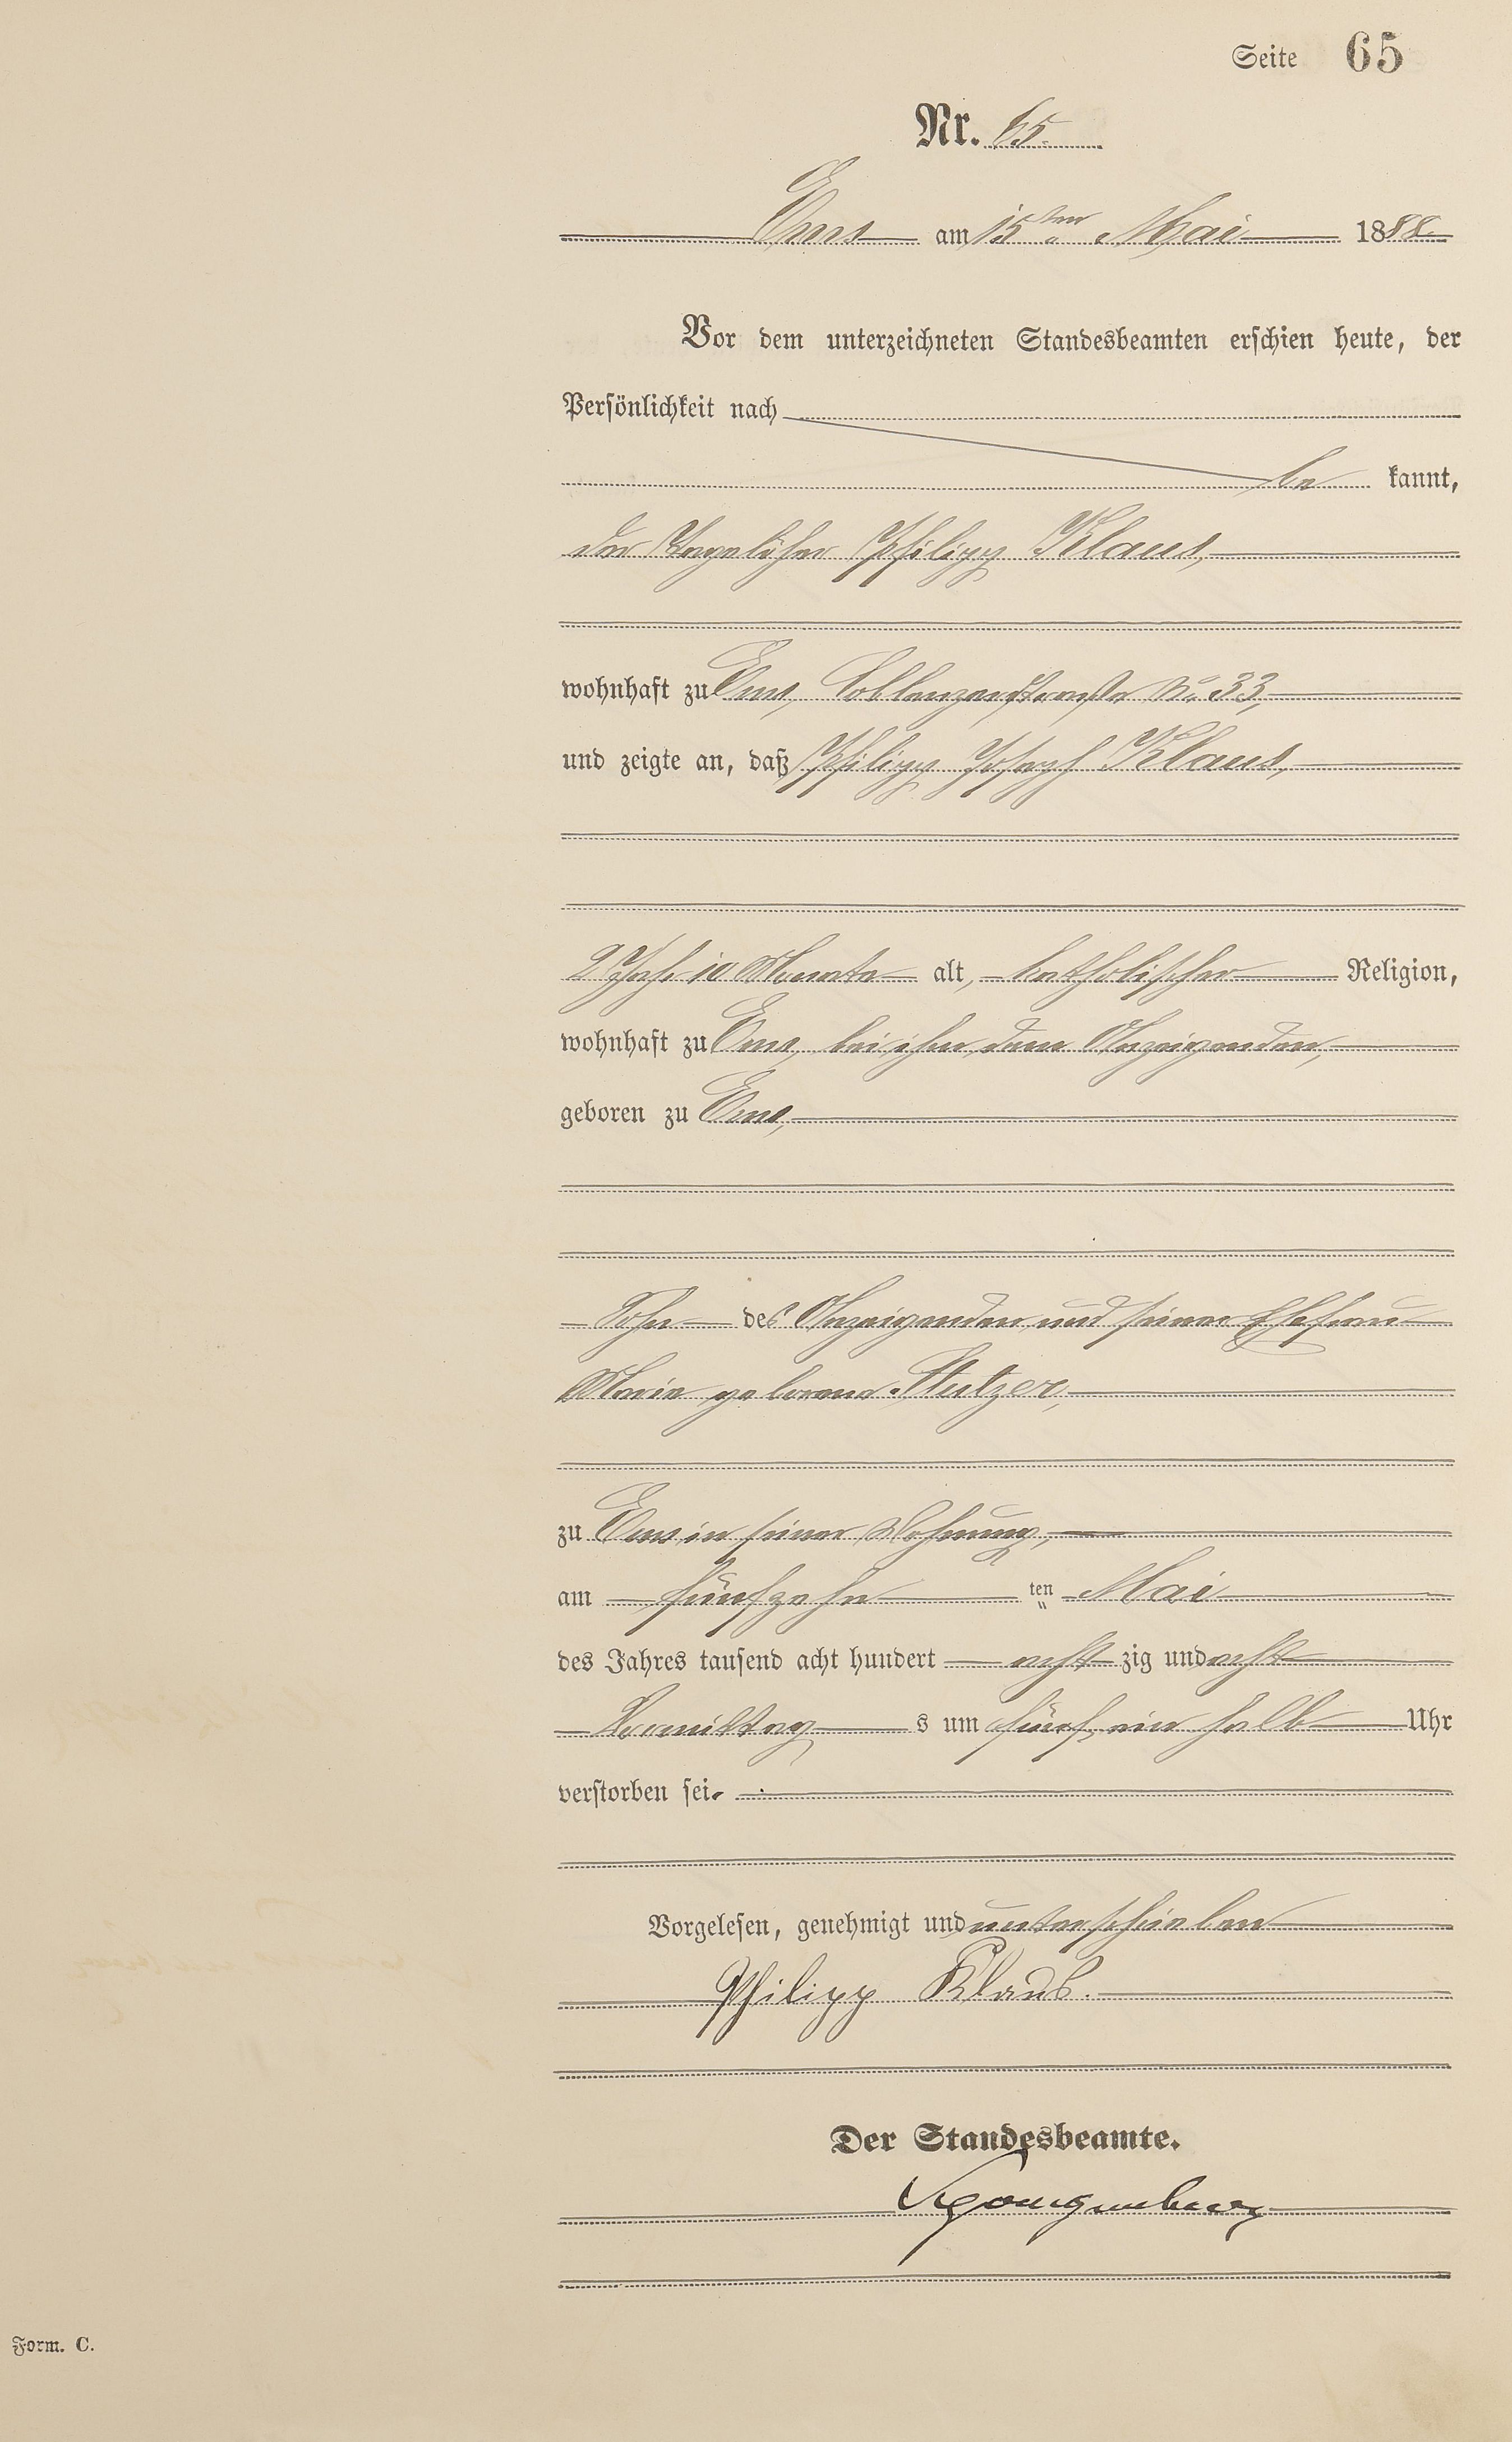 Seite 65
Nr. 65.
Ems am 15ten Mai 1888
Vor dem unterzeichneten Standesbeamten erschien heute, der
Persönlichkeit nach
be kannt,
der Philipp Klaus,
wohnhaft zu Ems, Coblenzerstraße No 33,
und zeigte an, daß Philipp Joseph Klaus,
2 Jahr 10 Monate alt, katholischer Religion,
wohnhaft zu Ems, bei ihm, dem Anzeigenden,
geboren zu Ems,
Sohn des Anzeigenden und seiner Ehefrau
Marie geborene Stutzer,
zu Ems in seiner Wohnung,
am fünfzehn ten Mai
des Jahres tausend acht hundert acht zig und acht
Vormittag s um fünf ein halb Uhr
verstorben sei.
Vorgelesen, genehmigt und unterschrieben
Philipp Klaus.
Der Standesbeamte.
Form. C.